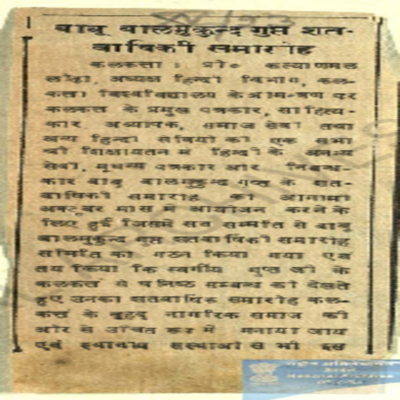 बाबू बालमुकुन्द गुप्त शत-
वार्षिकी समारोह
कलकत्ता : प्रो० कल्याणमल
लोढ़ा, अध्यक्ष हिन्दी विभाग, कल-
कत्ता विश्वविद्यालय के आमन्त्रण पर
कलकत्ते के प्रमुख पत्रकार, साहित्य-
कार अध्यापक, समाज सेवी तथा
अन्य हिन्दी सेवियों की एक सभा
श्री शिक्षायतन में हिन्दी के अनन्य
सेवी, मूर्धन्य पत्रकार और निबन्ध-
कार बाबू बालमुकुन्द गुप्त के शत-
वार्षिकी समारोह का आगामी
अक्टूबर मास में आयोजन करने के
लिए हुई जिसमें सर्व सम्मति से बाबू
बालमुकुन्द गुप्त शतवार्षिकी समारोह
समिति का गठन किया गया एवं
तय किया कि स्वर्गीय गुप्त जी के
कलकत्ते से घनिष्ठ सम्बन्ध को देखते
हुए उनका शतवार्षिक समारोह कल-
कत्ते के वृहद् नागरिक समाज की
ओर से उचित रूप में मनाया जाय
एवं स्थानीय संस्थाओं से भी इस